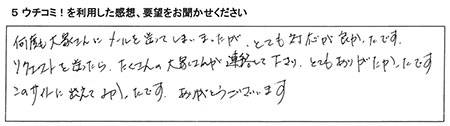 5 ウチコミ！を利用した感想、要望をお聞かせください
何度も大家さんにメールを送ってしまいましたが、とても対応が良かったです
リクエストを送ったら、たくさんの大家さんが連絡して下さり、とてもありがたかったです
このサイトに出会えてよかったです。ありがとうございます